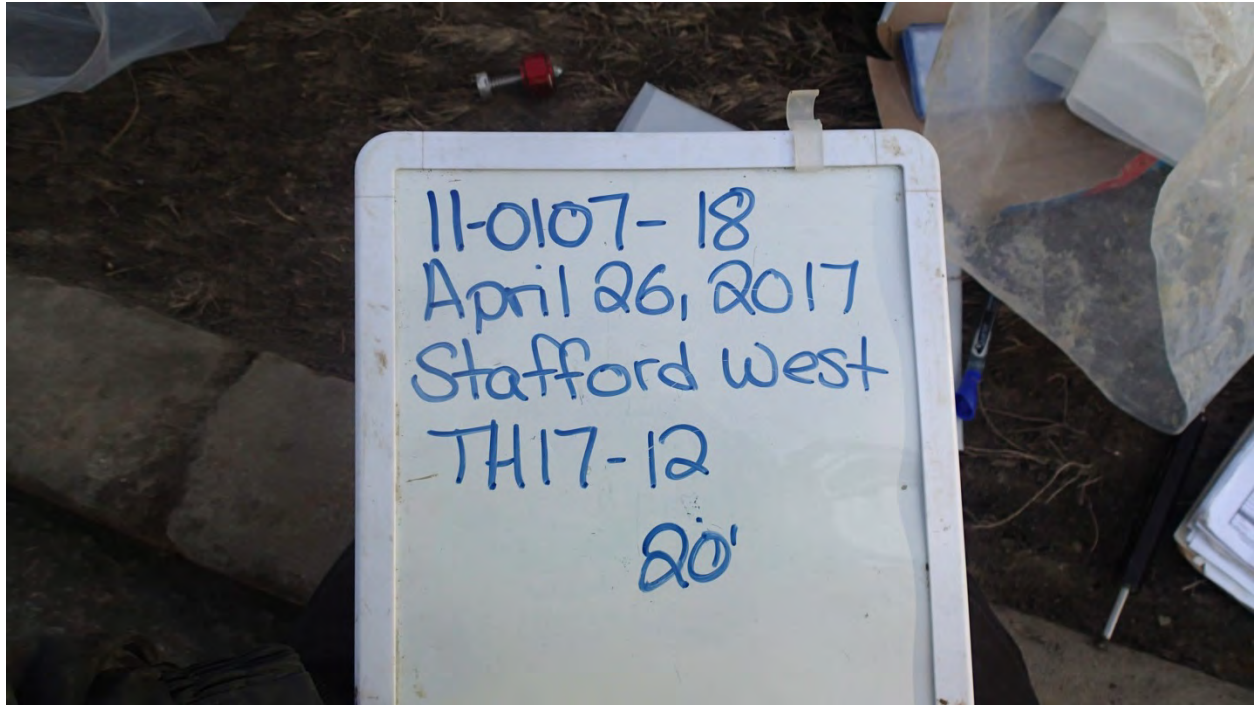 11-0107-18
April 26, 2017
Stafford West
TH17-12
20'